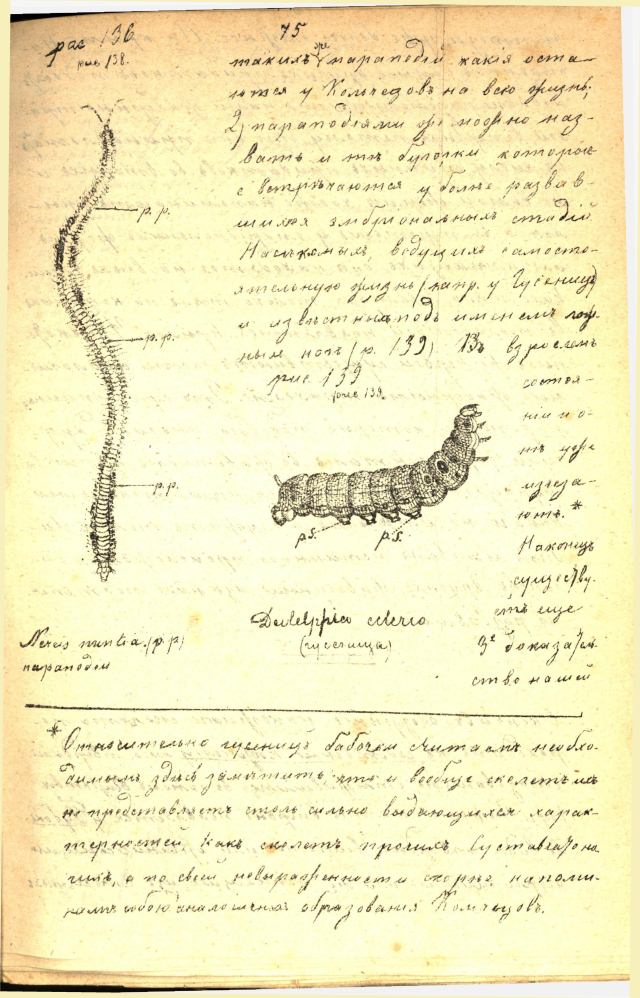 75
рис 136
рис 138.
такихъ же параподій какія оста-
ются у Кольчецовъ на всю жизнь;
2) параподіями же можно наз-
вать и тѣ бугорки которые
встрѣчаются у болѣе развив-
шихся эмбріональныхъ стадій
Насѣкомыхъ, ведущихъ самосто-
ятельную жизнь (напр. у Гусеницъ)
и извѣстныхъ подъ именемъ лож-
ныхъ ногъ (р. 139). Въ взросломъ
рис 139
рис 138.
состоя-
ніи и о-
нѣ уже
изчеза-
ютъ. *
Наконецъ
существу-
етъ еще
3е доказатель-
ство нашей
р.р.
р.р.
р.р.
p.s.
p.s.
Nereis nuntia. (р.р)
параподіи
Deilephila celerio
(гусеница)
* Относительно гусеницъ бабочекъ считаемъ необхо-
димымъ здѣсь замѣтить, что и вообще скелетъ ихъ
не представляетъ столь сильно выдающихся харак-
терностей какъ скелетъ прочихъ Суставчатоно-
гихъ, а по своей невыраженности скорѣе напоми-
наетъ собою аналогичныя образованія Кольчецовъ.